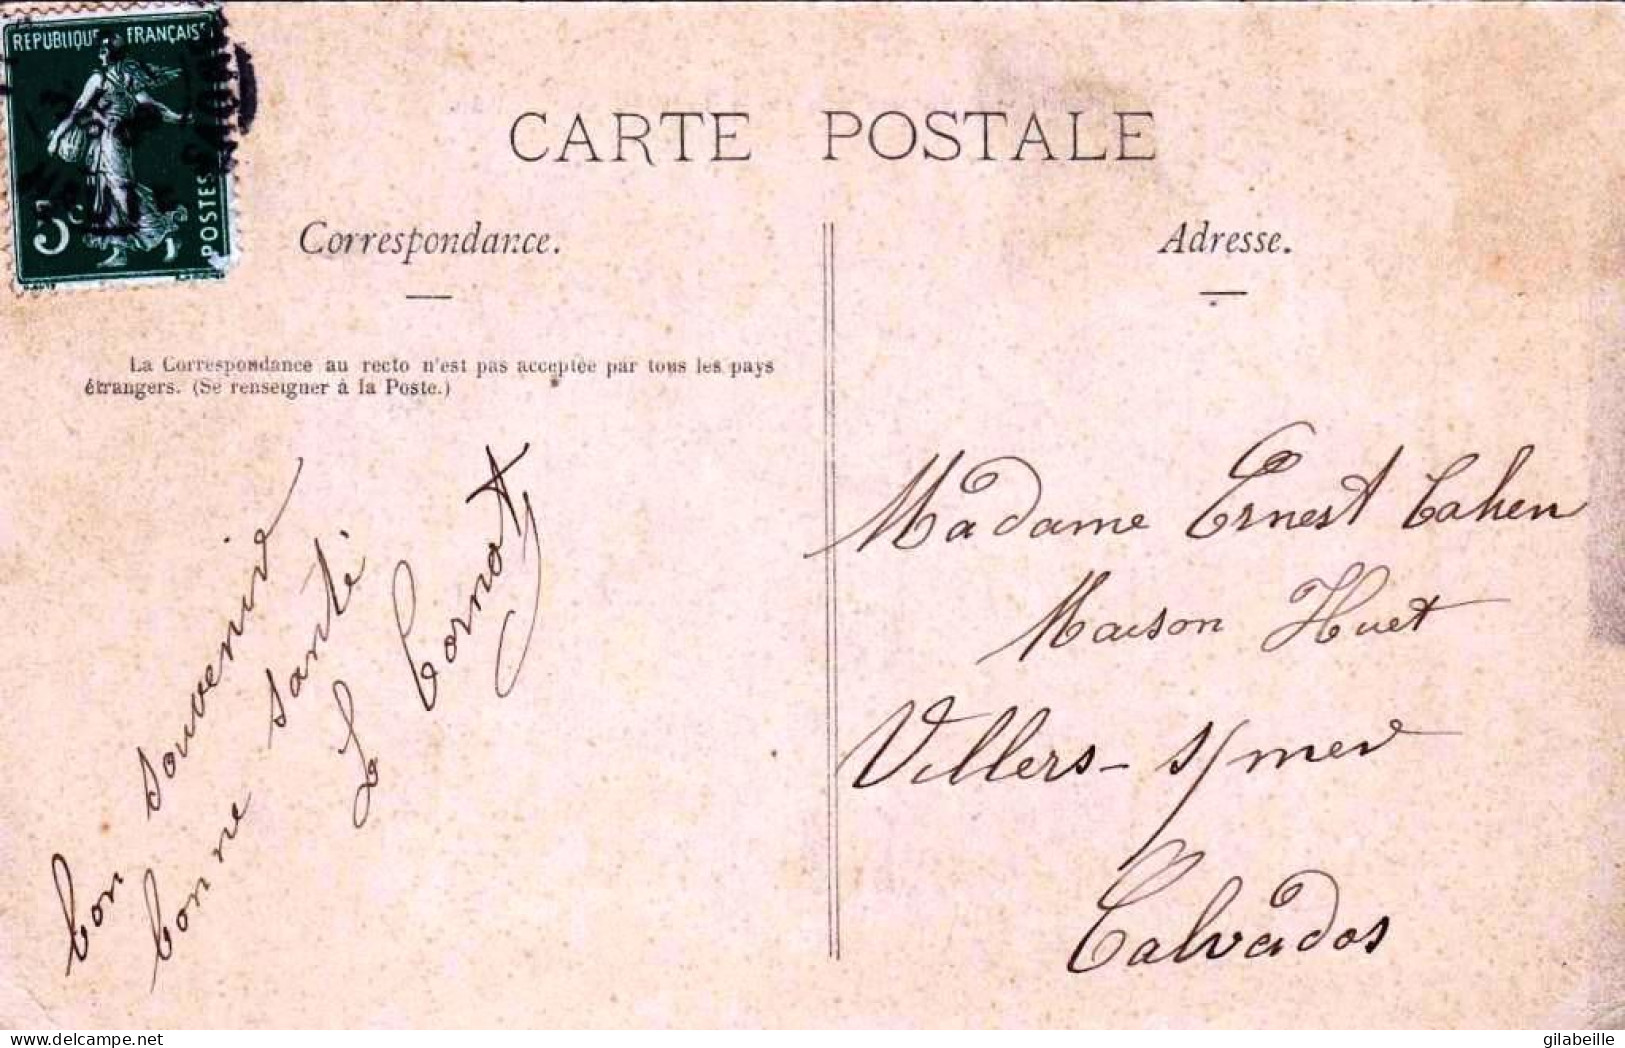 REPUBLIQUE FRANÇAISE
5c
POSTES
CARTE POSTALE
Correspondance.
La Correspondance au recto n'est pas acceptée par tous les pays
étrangers. (Se renseigner à la Poste.)
bon souvenir
bonne santé
L Cornot
Adresse.
Madame Ernest Cahen
Maison Huet
Villers-s/mer
Calvados
gilabeille